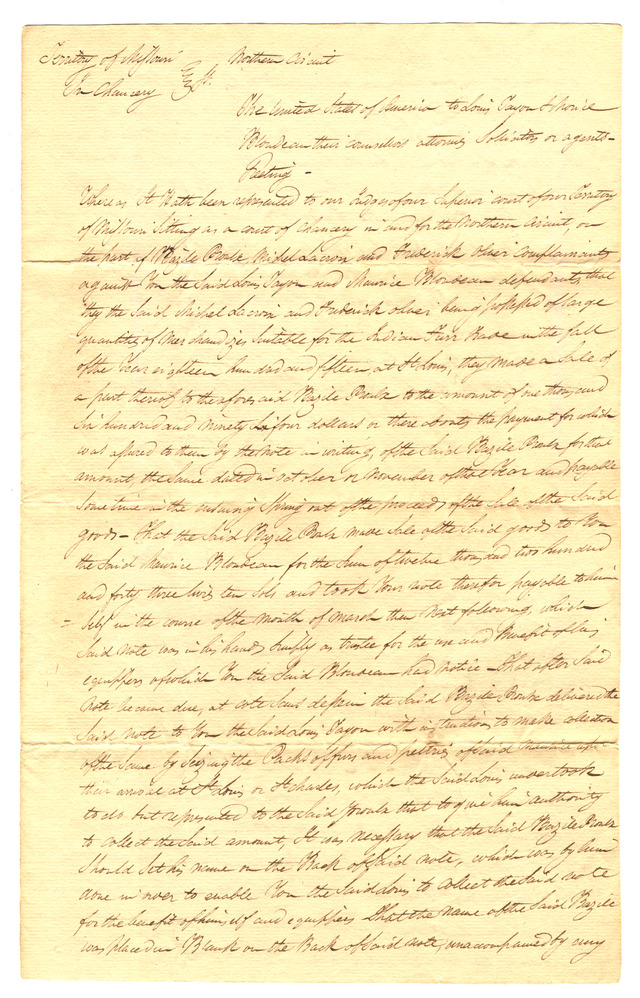 Territory of Missouri Northern Circuit
In Chancery
The United States of America to Louis Tayon & Morice
Blondeau their counselors attornies Solicitors or agents -
Greeting -
Whereas It Hath been represented to our Judges of our Superior court of our Territory
of Missouri Sitting as a court of chancery in and for the Northern Circuit, on
the part of Bazile Proulx Michel Lacroix and Frederick Olivei complainants
against You the Said Louis Tayon and Maurice Blondeau defendants, that
they the Said Michel Lacroix and Frederick Olivei being possessed of large
quantities of Merchandizes Suitable for the Indian Furr trade in the fall
of the Year eighteen hundred and fifteen at St Louis, they made a Sale of
a part thereof to the aforesaid Bazile Proulx to the amount of one thousand
Six hundred and ninety four dollars or there abouts the payment for which
was assured to them by the Note in writing, of the Said Bazile Proulx for that
amount, the Same dated in october or November of that Year and payable
Some time in the ensuing Spring out of the proceeds of the Sale of the Said
goods - That the Said Bazile Proulx made Sale of the Said goods to You
the Said Maurice Blondeau for the Sum of twelve thousand two hundred
and forty three livres ten Sols and took Your note therefor payable to him
= Self in the course of the Month of March then Next following, which
Said Note was in his hands Simply as trustee for the use and Benefit of his
equippers of which You the Said Blondeau had Notice - That after Said
Note became due, at Cote Sans dessein the Said Bazile Proulx delivered the
Said note to You the Said Louis Tayon with instructions to make collection
of the Same by Seizing the Packs of furrs and peltries of Said Maurice upon
their arrival at St Louis or St charles, which the Said Louis undertook
to do but represented to the Said Proulx that to give him authority
to collect the Said amount, It was necessary that the Said Bazile Proulx
Should Set his name on the Back of Said note, which was by him
done in order to enable You the Said Louis to collect the Said note
for the benefit of himself and equippers That the Name of the Said Bazile
was placed in Blank on the Back of Said note, unaccompanied by any